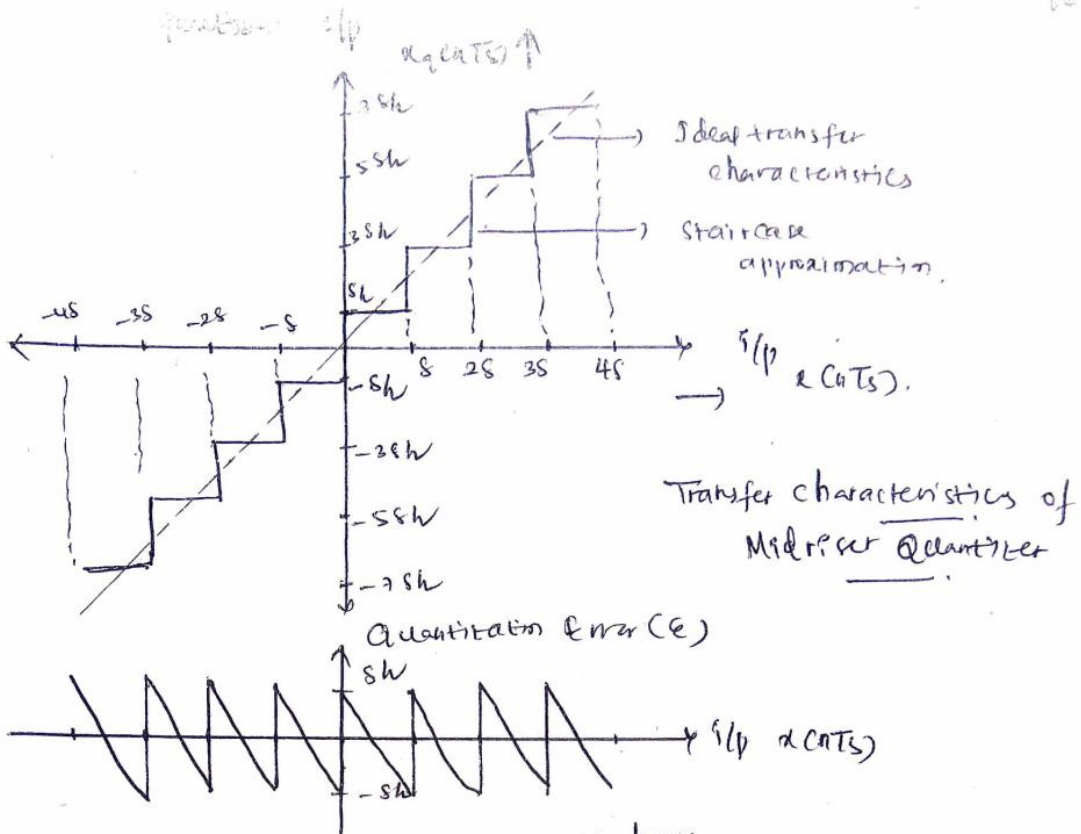 i/p
xq(nTs) ↑
7δ/2
Ideal transfer
characteristics
5δ/2
Staircase
approximation.
3δ/2
δ/2
-4δ -3δ -2δ -δ
δ 2δ 3δ 4δ
i/p
→ x(nTs).
-δ/2
-3δ/2
-5δ/2
-7δ/2
Transfer characteristics of
Midriser Quantizer
Quantization Error (ε)
δ/2
i/p x(nTs)
-δ/2